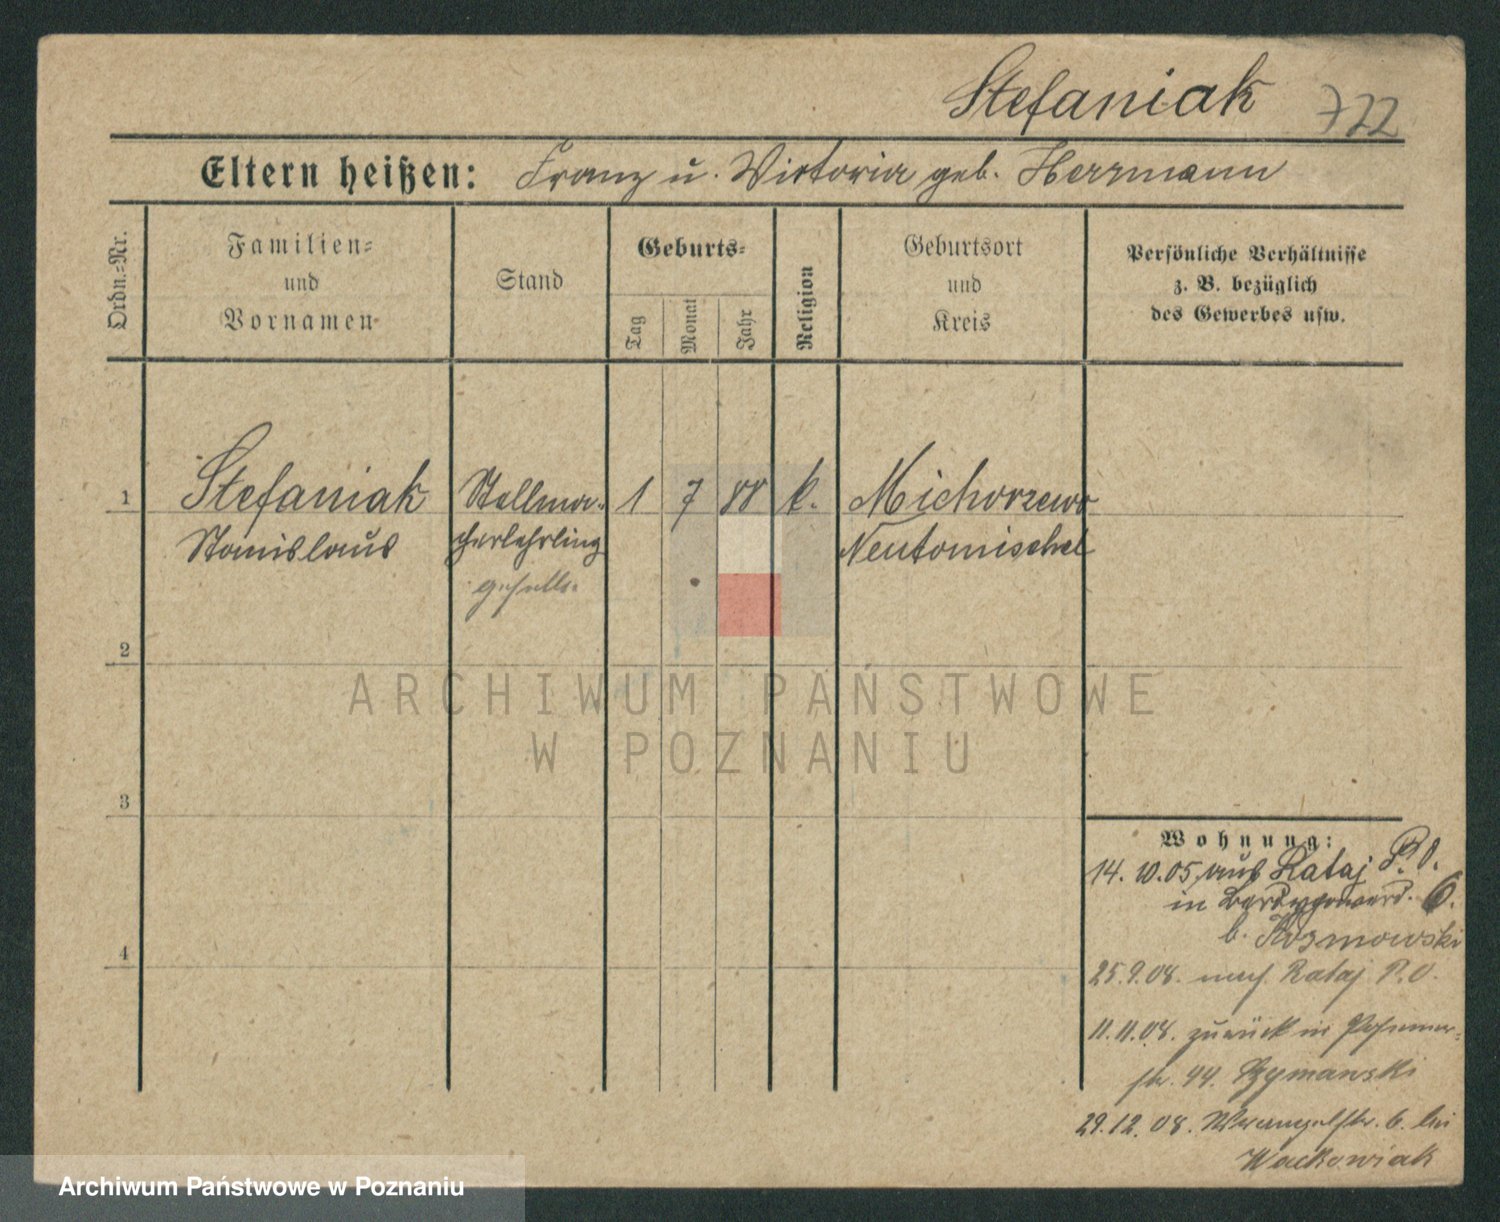 Stefaniak 722
Eltern heißen: Franz u. Victoria geb. Herrmann
Ordn.-Nr.
Familien-
und
Vornamen
Stand
Geburts-
Tag
Monat
Jahr
Religion
Geburtsort
und
Kreis
Persönliche Verhältnisse
z. B. bezüglich
des Gewerbes usw.
1 Stefaniak Stellma- 1 7 88 k. Michorzewo
Stanislaus cherlehrling Neutomischel
geselle.
2
ARCHIWUM PAŃSTWOWE
W POZNANIU
3
Wohnung:
14. 10. 05 aus Rataj P. O.
in 6.
b. Kosmowski
25.9.08. nach Rataj P. O.
11.11.08. zurück in
str. 44. Szymanski
29.12.08. Wrangelstr. 6. bei
Wackowiak
4
Archiwum Państwowe w Poznaniu